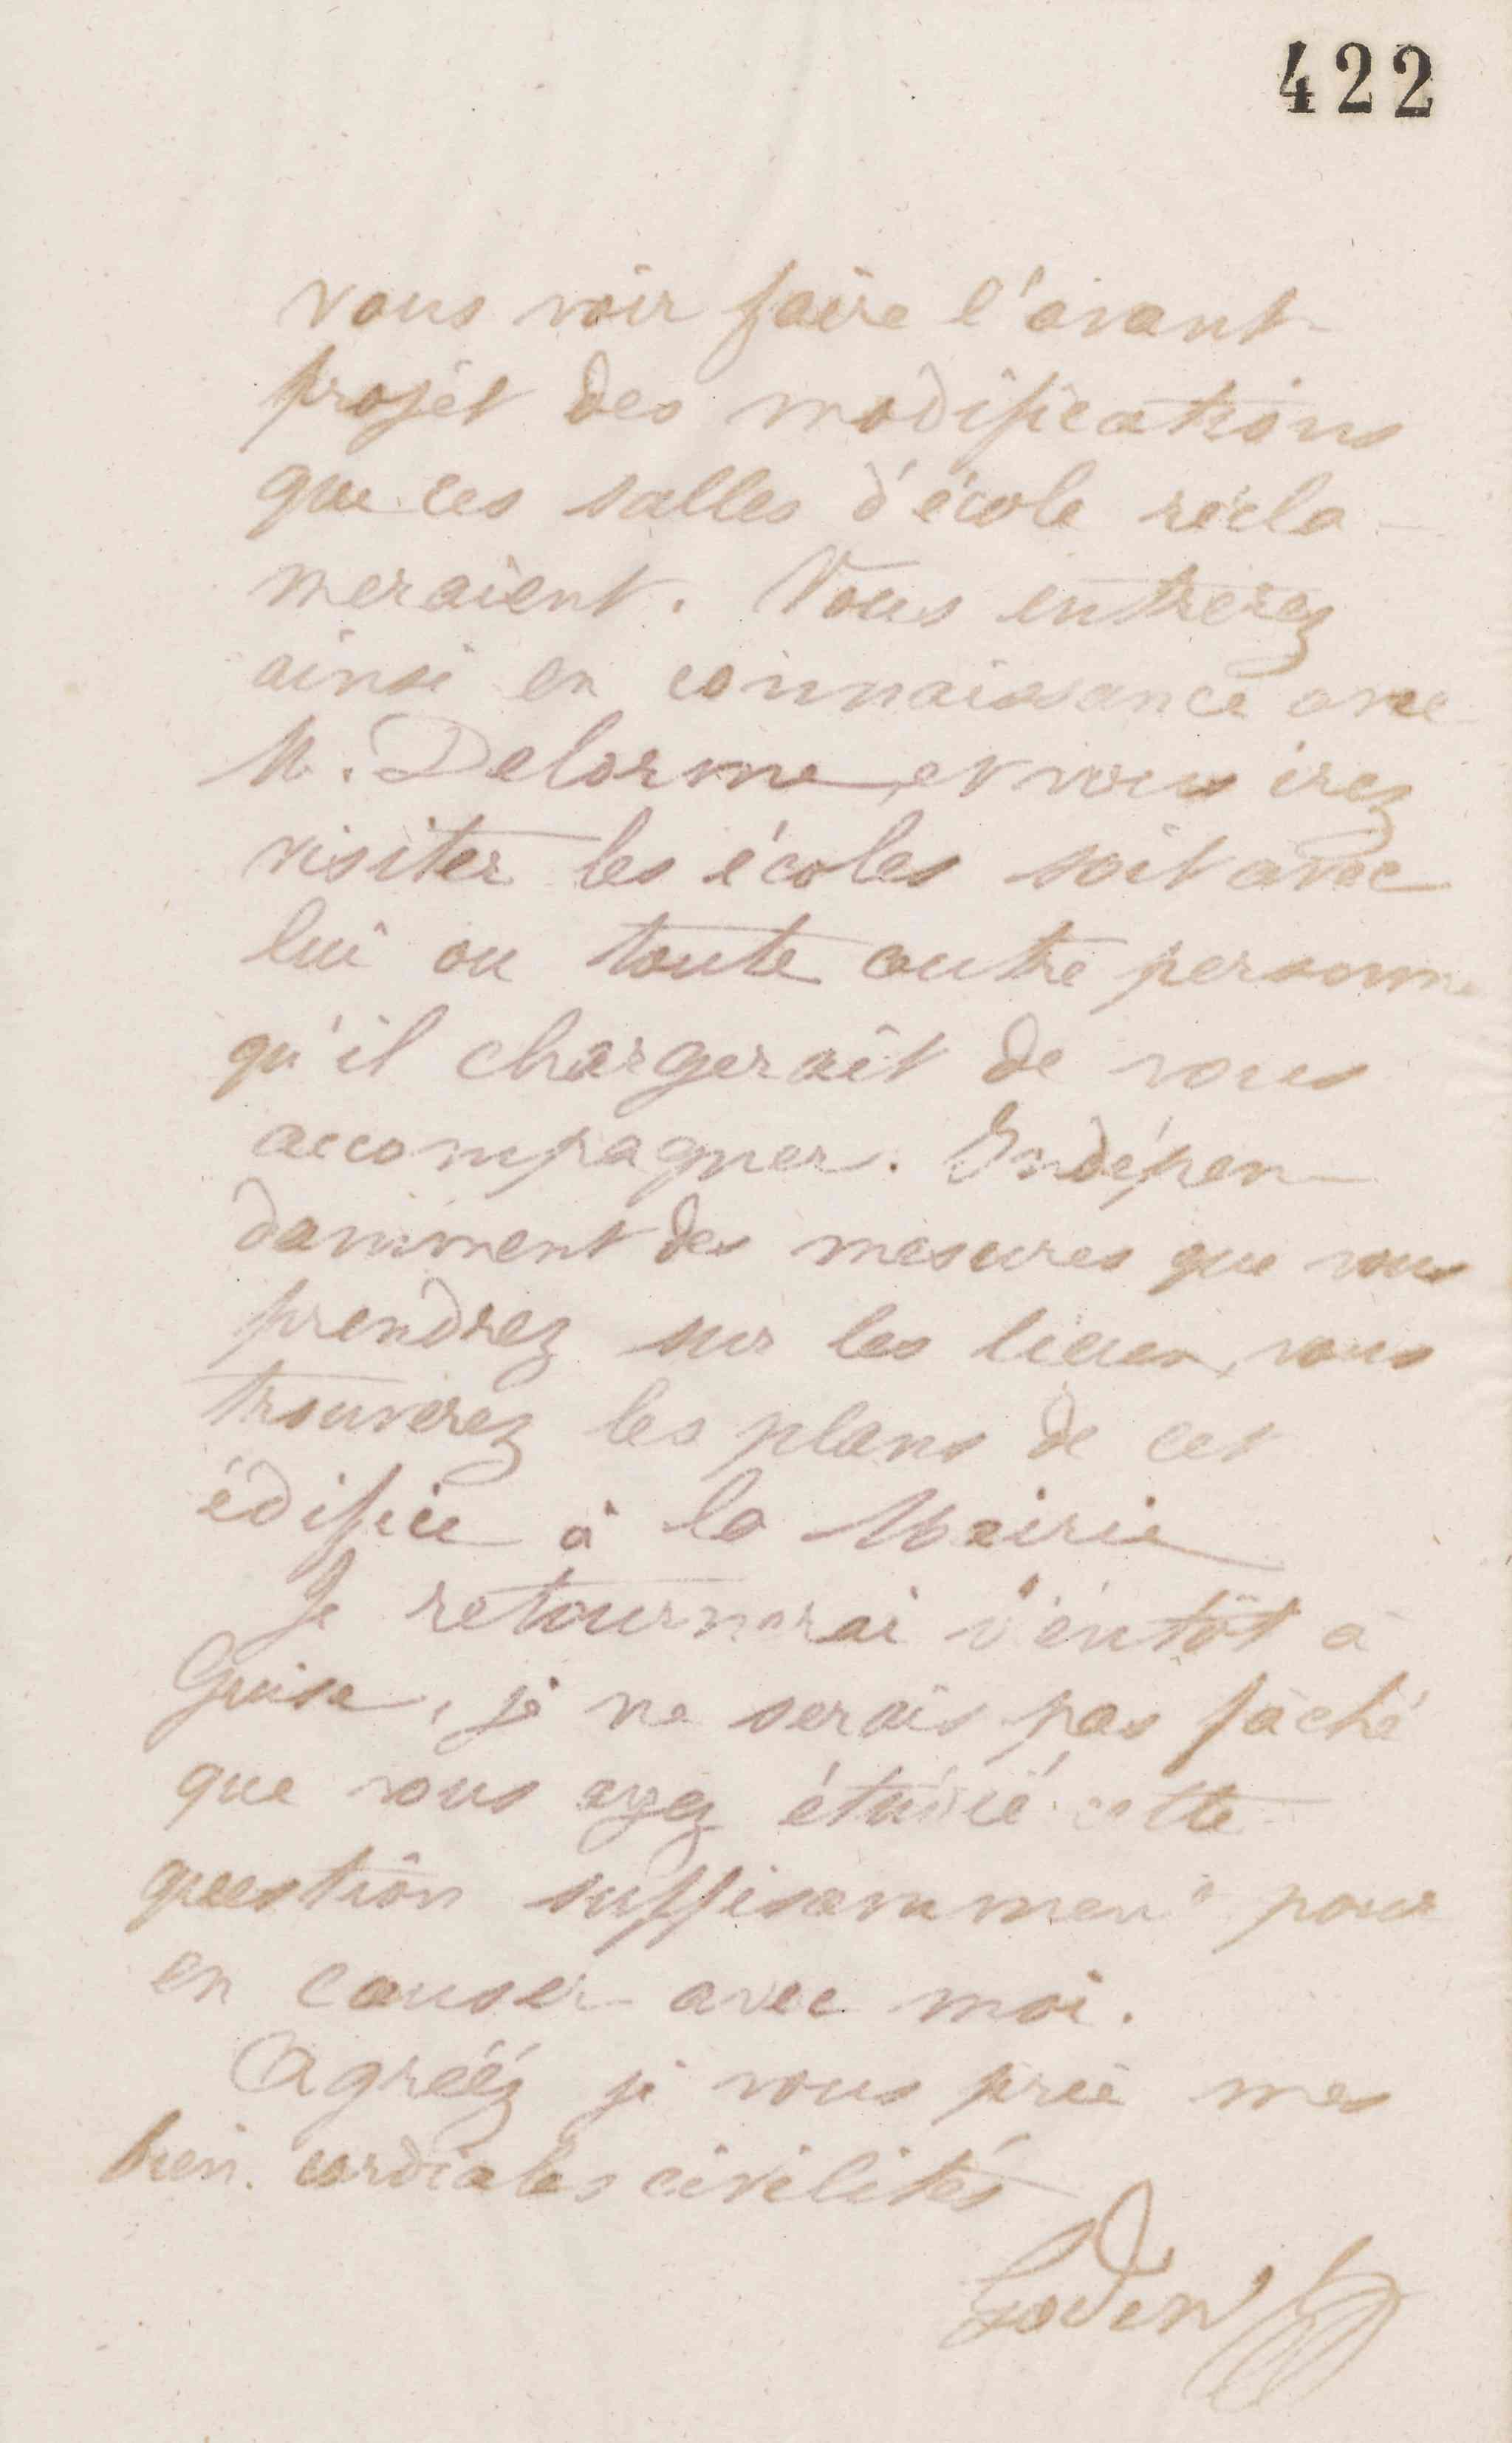 422
vous voir faire l'avant-
projet des modifications
que ces salles d'école récla-
meraient. Vous entrerez
ainsi en connaissance avec
M. Delorme, et vous irez
visiter les écoles soit avec
lui ou toute autre personne
qu'il chargerait de vous
accompagner. Indépen-
damment des mesures que vous
prendrez sur les lieux, vous
trouverez les plans de cet
édifice à la Mairie
Je retournerai bientôt à
Guise, je ne serais pas fâché
que vous ayez étudié cette
question suffisamment pour
en causer avec moi.
Agréez je vous prie mes
bien cordiales civilités
Godin